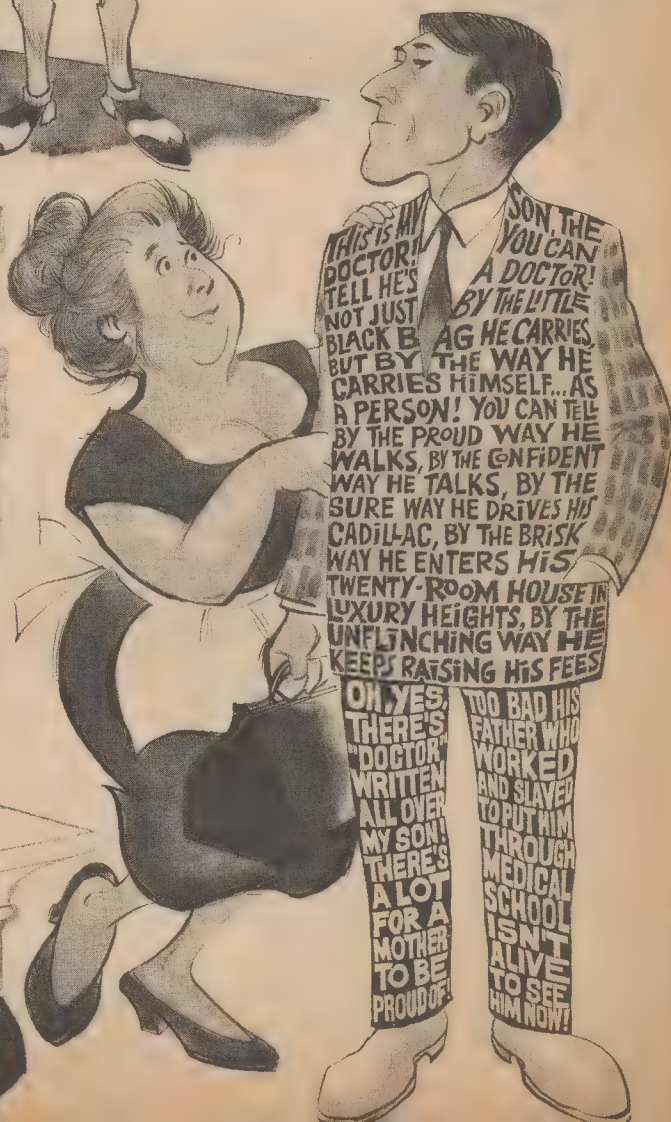 THIS IS MY SON, THE
DOCTOR! YOU CAN
TELL HE'S A DOCTOR!
NOT JUST BY THE LITTLE
BLACK BAG HE CARRIES,
BUT BY THE WAY HE
CARRIES HIMSELF...AS
A PERSON! YOU CAN TELL
BY THE PROUD WAY HE
WALKS, BY THE CONFIDENT
WAY HE TALKS, BY THE
SURE WAY HE DRIVES HIS
CADILLAC, BY THE BRISK
WAY HE ENTERS HIS
TWENTY-ROOM HOUSE IN
LUXURY HEIGHTS, BY THE
UNFLINCHING WAY HE
KEEPS RAISING HIS FEES
OH, YES,
THERE'S
"DOCTOR"
WRITTEN
ALL OVER
MY SON!
THERE'S
A LOT
FOR A
MOTHER
TO BE
PROUD OF!
TOO BAD HIS
FATHER WHO
WORKED
AND SLAVED
TO PUT HIM
THROUGH
MEDICAL
SCHOOL
ISN'T
ALIVE
TO SEE
HIM NOW!